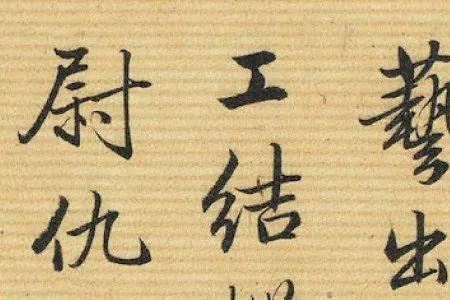 藝出
工結
尉仇